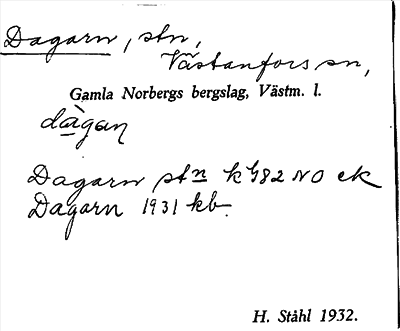 Dagarn, stn,
Västanfors sn,
Gamla Norbergs bergslag, Västm. l.
dàgaṇ
Dagarn stn k 482 NO ek
Dagarn 1931 kb.
H. Ståhl 1932.